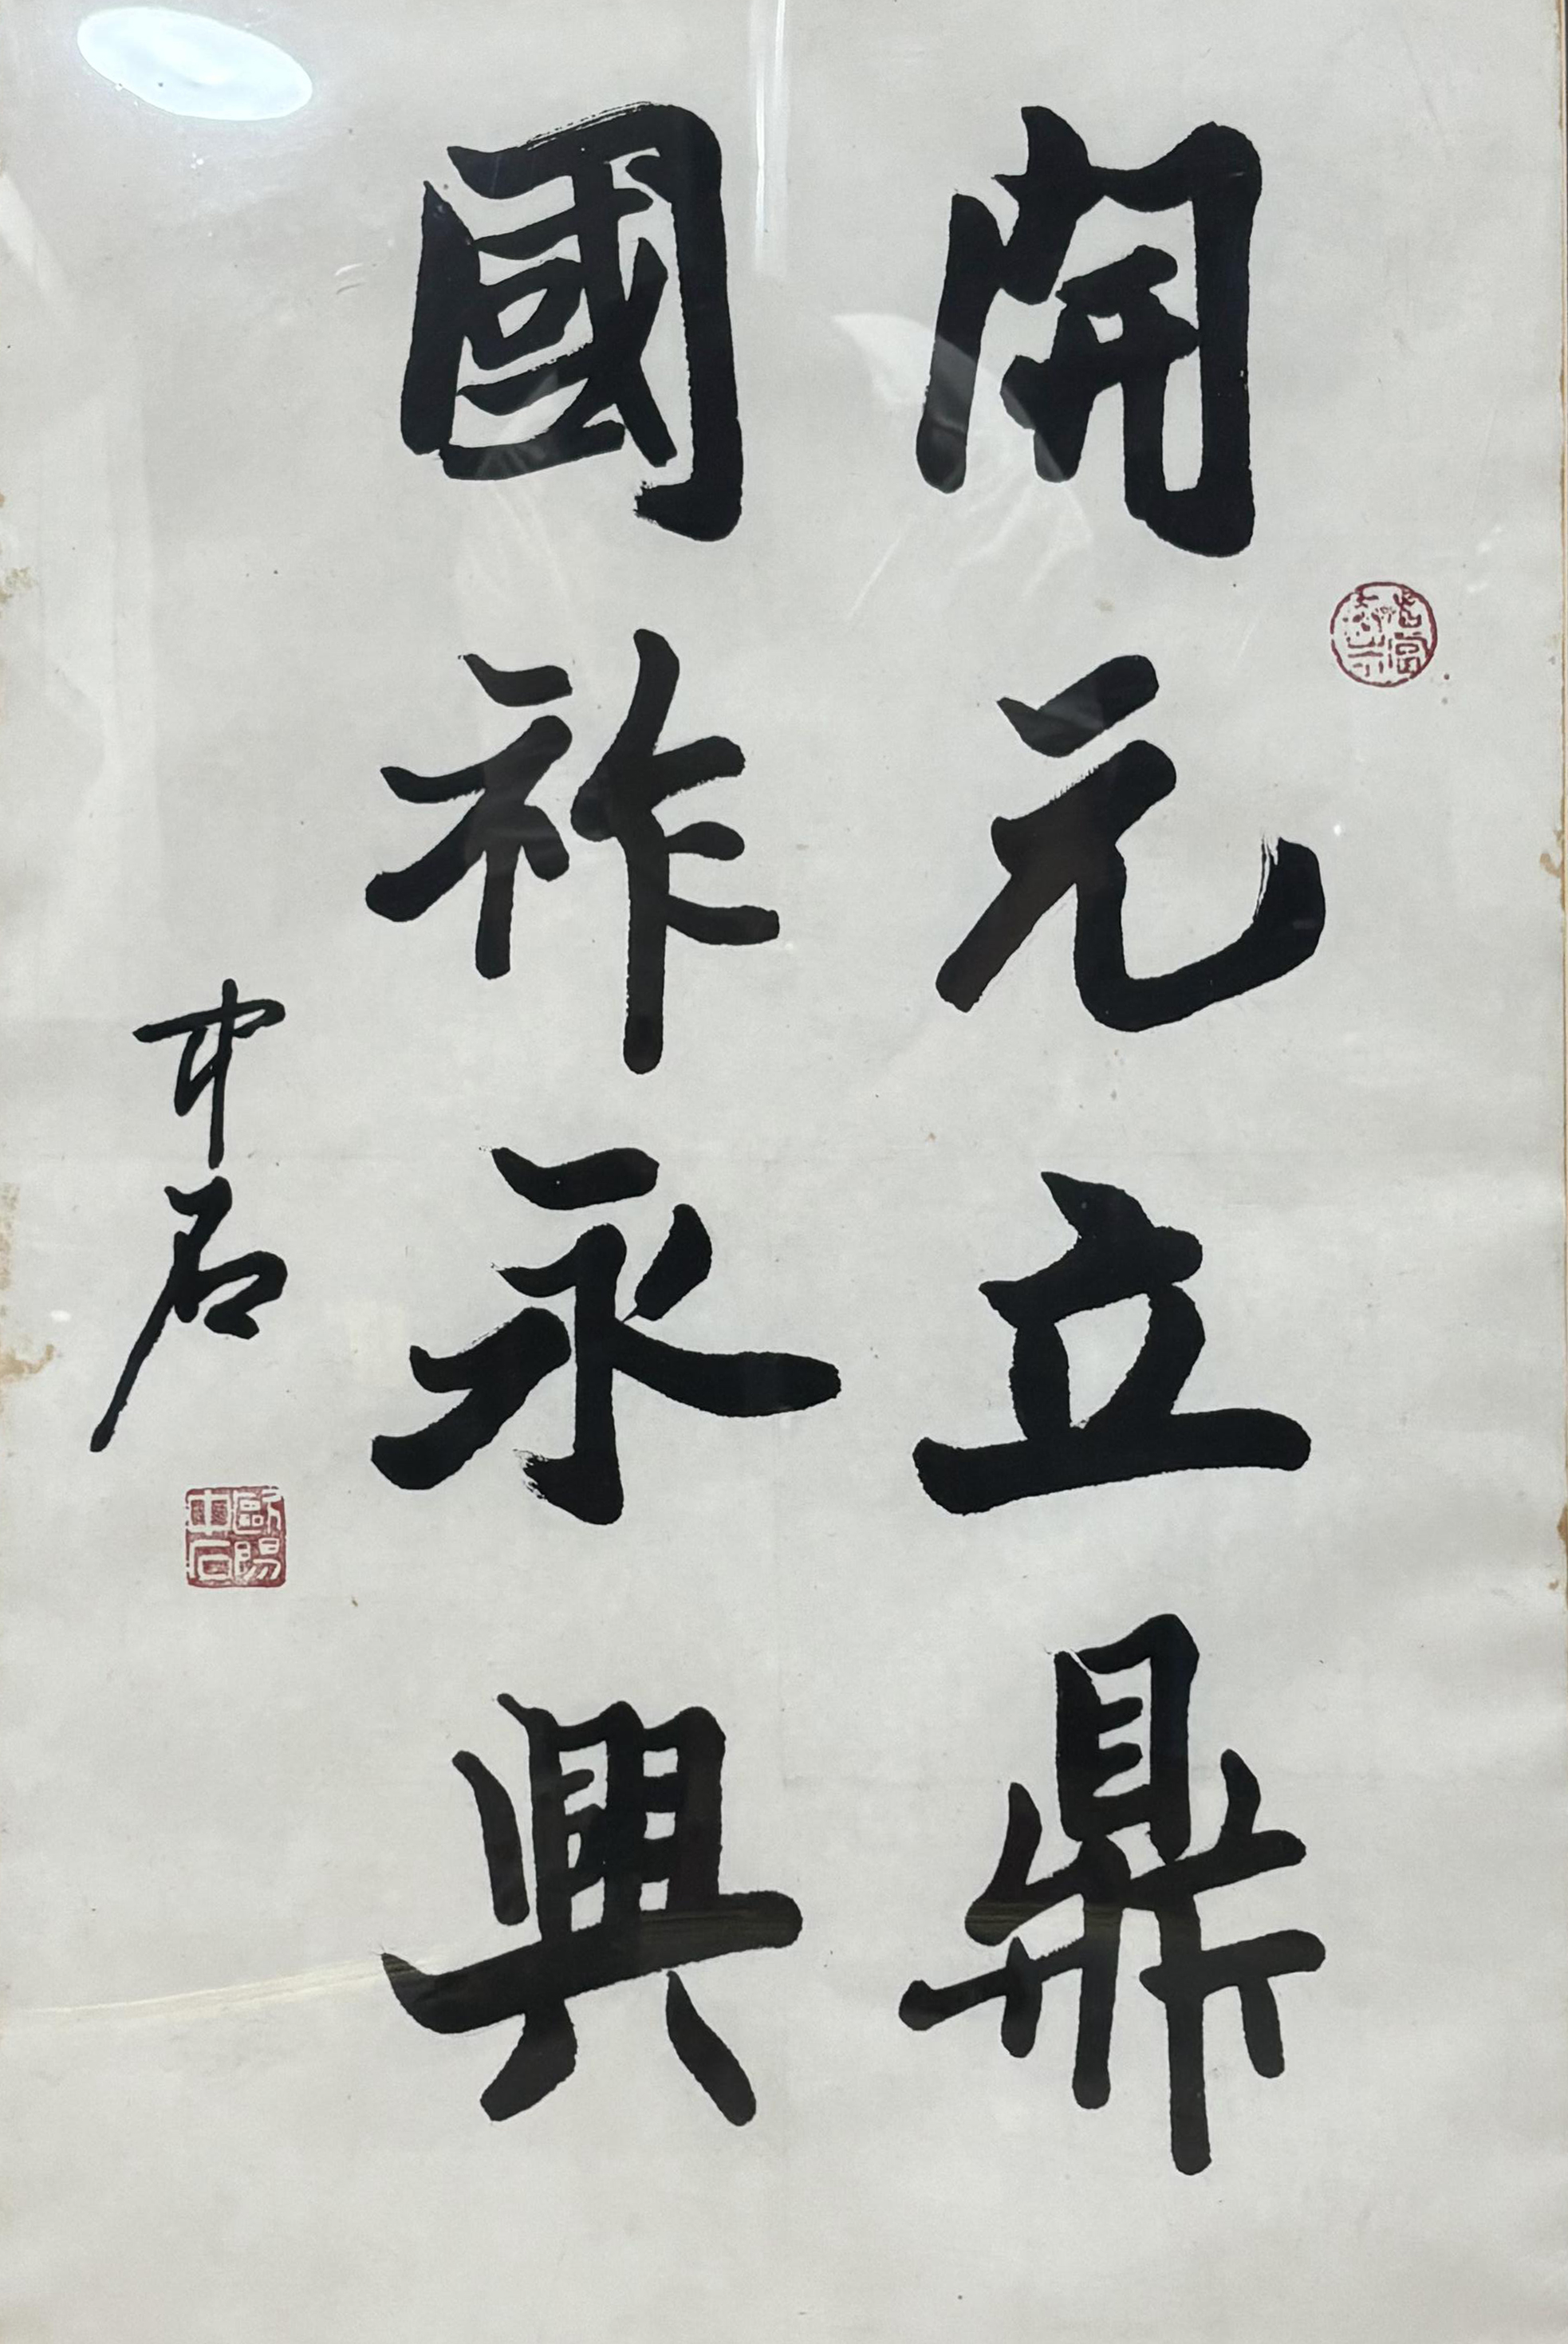 開元立鼎
國祚永興
中石
歐陽中石